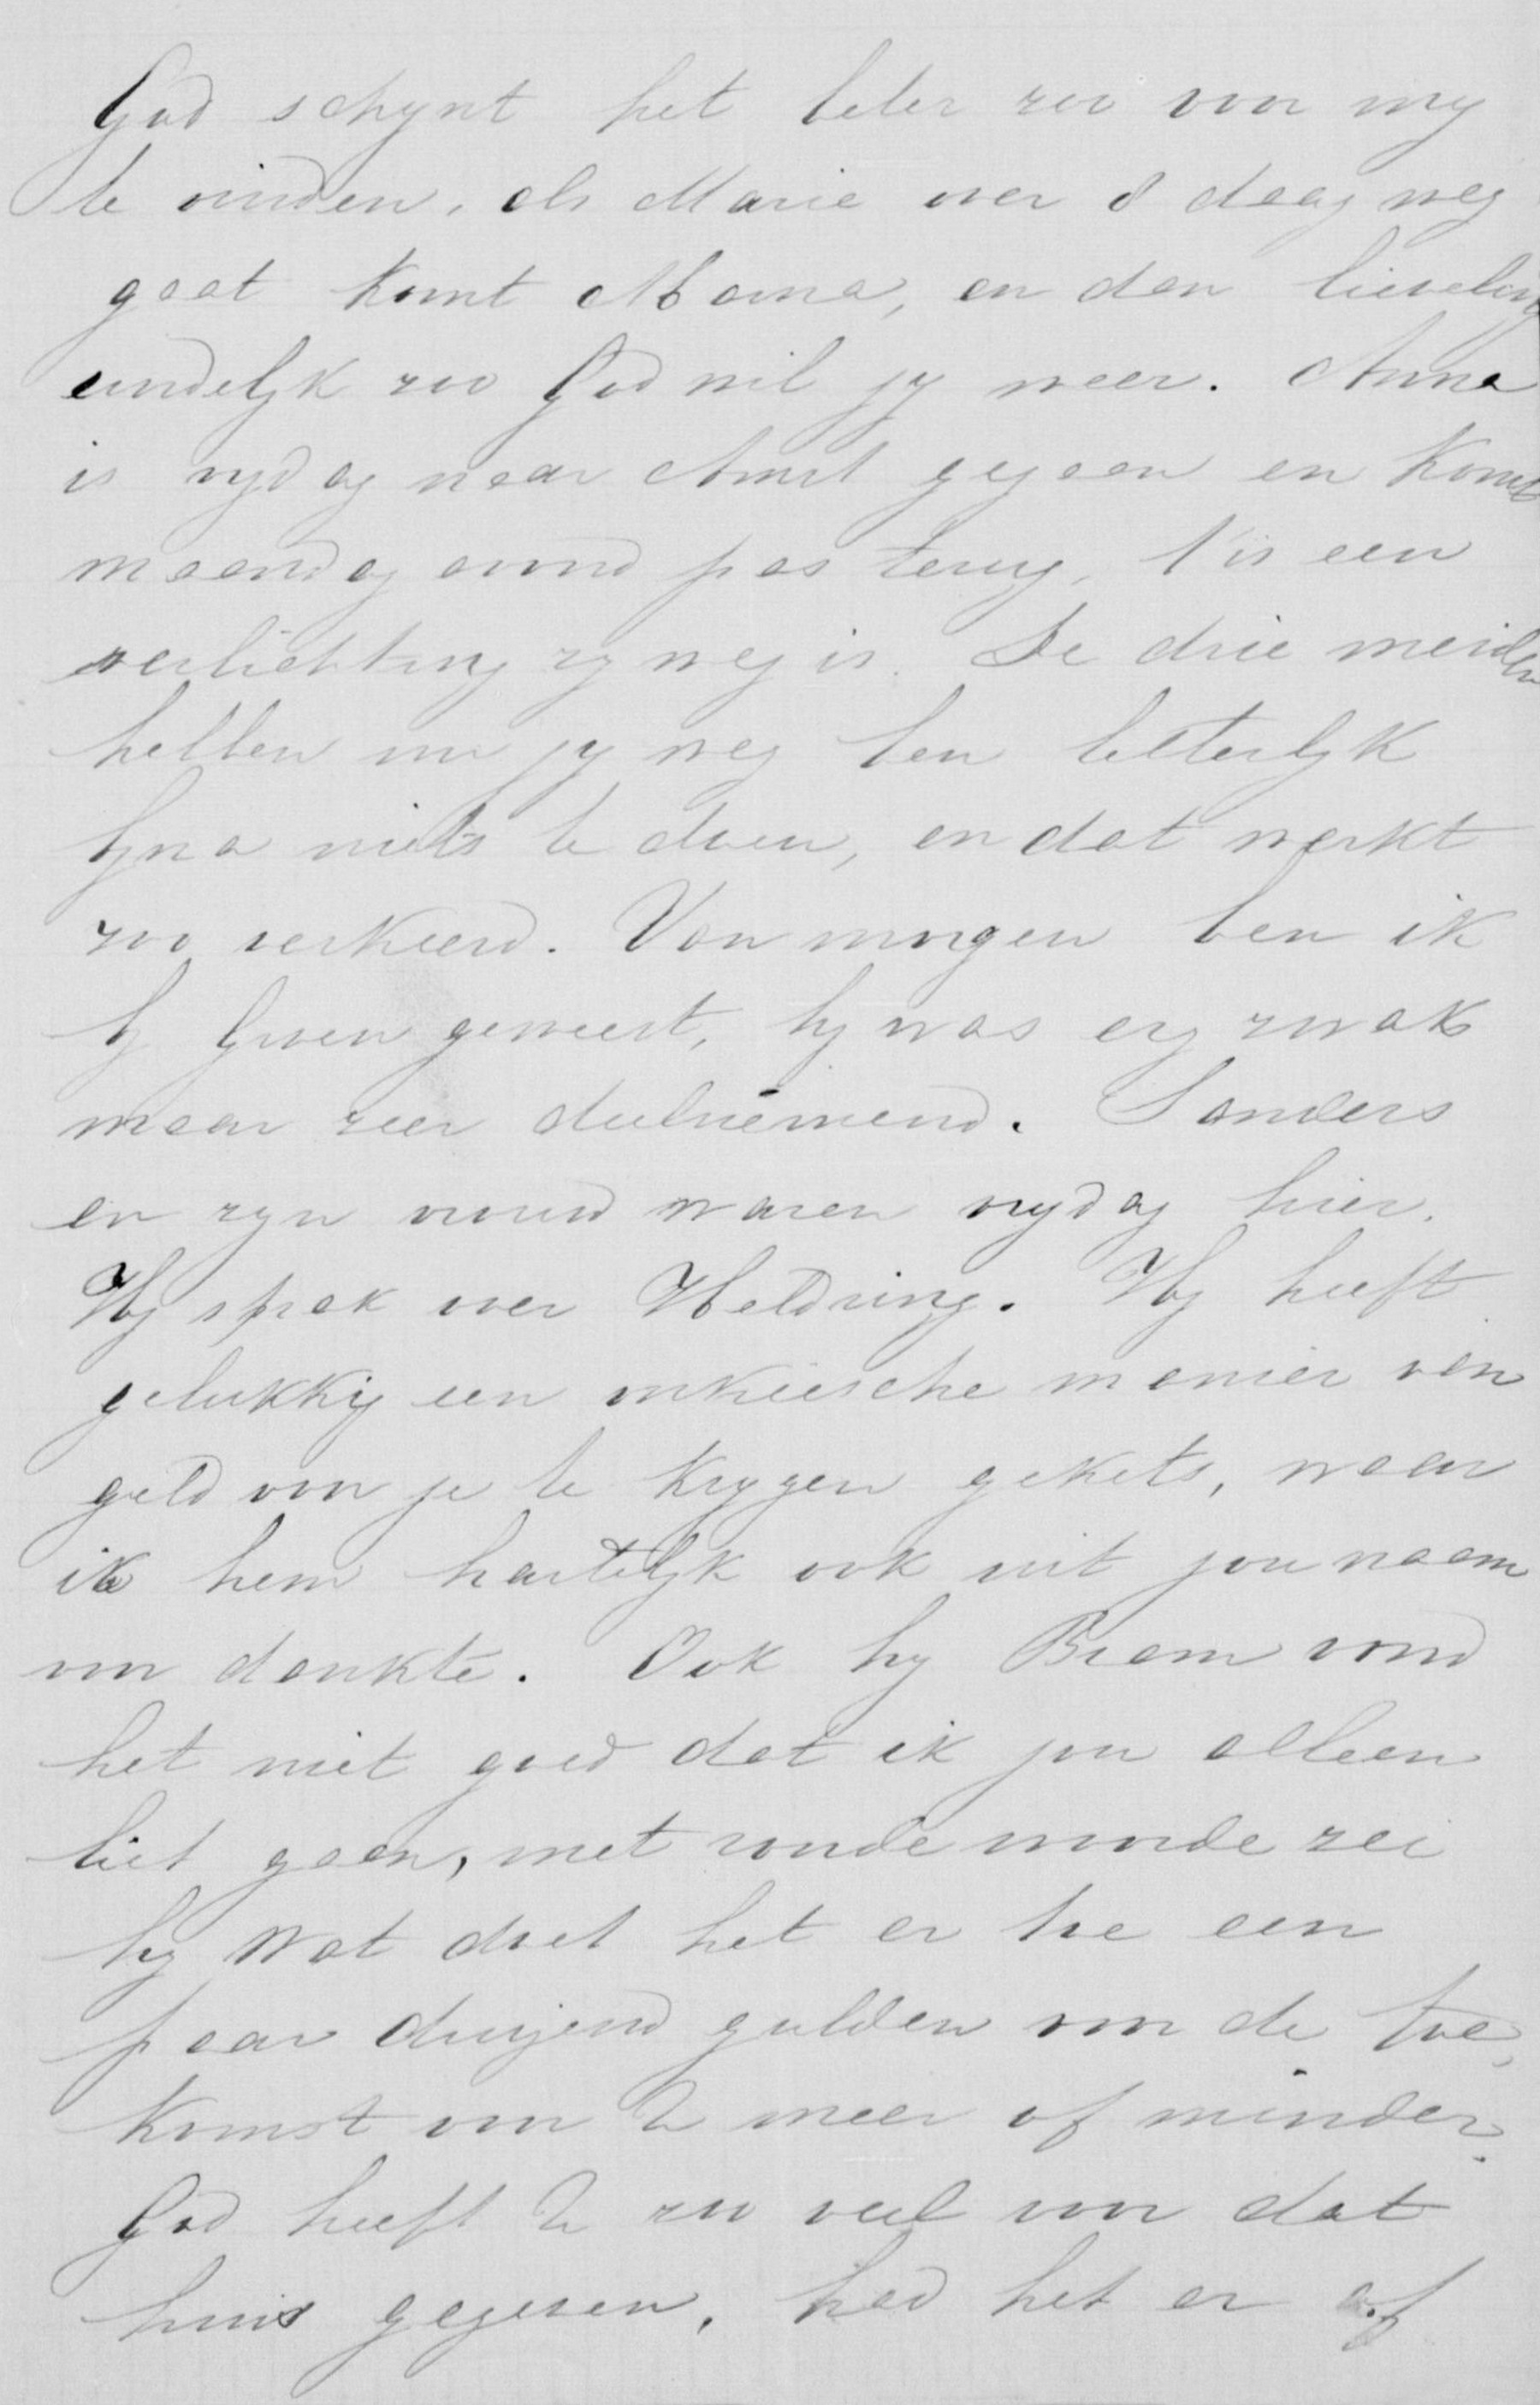 God schynt het beter zoo voor my
te vinden, als Marie over 8 daag weg
gaat komt Mama, en dan lieveling
eindelyk zoo God wil jy weer. Anna
is vrydag naar Amst gegaan en komt
maandag avond pas terug, t'is een
verlichting zy weg is. De drie meiden
hebben nu jy weg ben letterlyk
byna niets te doen, en dat werkt
zoo verkeerd. Van morgen ben ik
by geweest, hy was erg zwak
maar zeer deelnemend. Sanders
en zyn vrouw waren vrydag hier.
Hy sprak over Heldring. Hy heeft
gelukkig een onkiesche manier van
geld van je te krygen gekets, waar
ik hem hartelyk ook uit jou naam
voor dankte. Ook hy Bram vond
het niet goed dat ik jou alleen
liet gaan, met ronde woorde zei
hy wat doet het er toe een
paar duizend gulden voor de toe,
komst voor U meer of minder.
God heeft U zoo veel voor dat
huis gegeven, had het er af